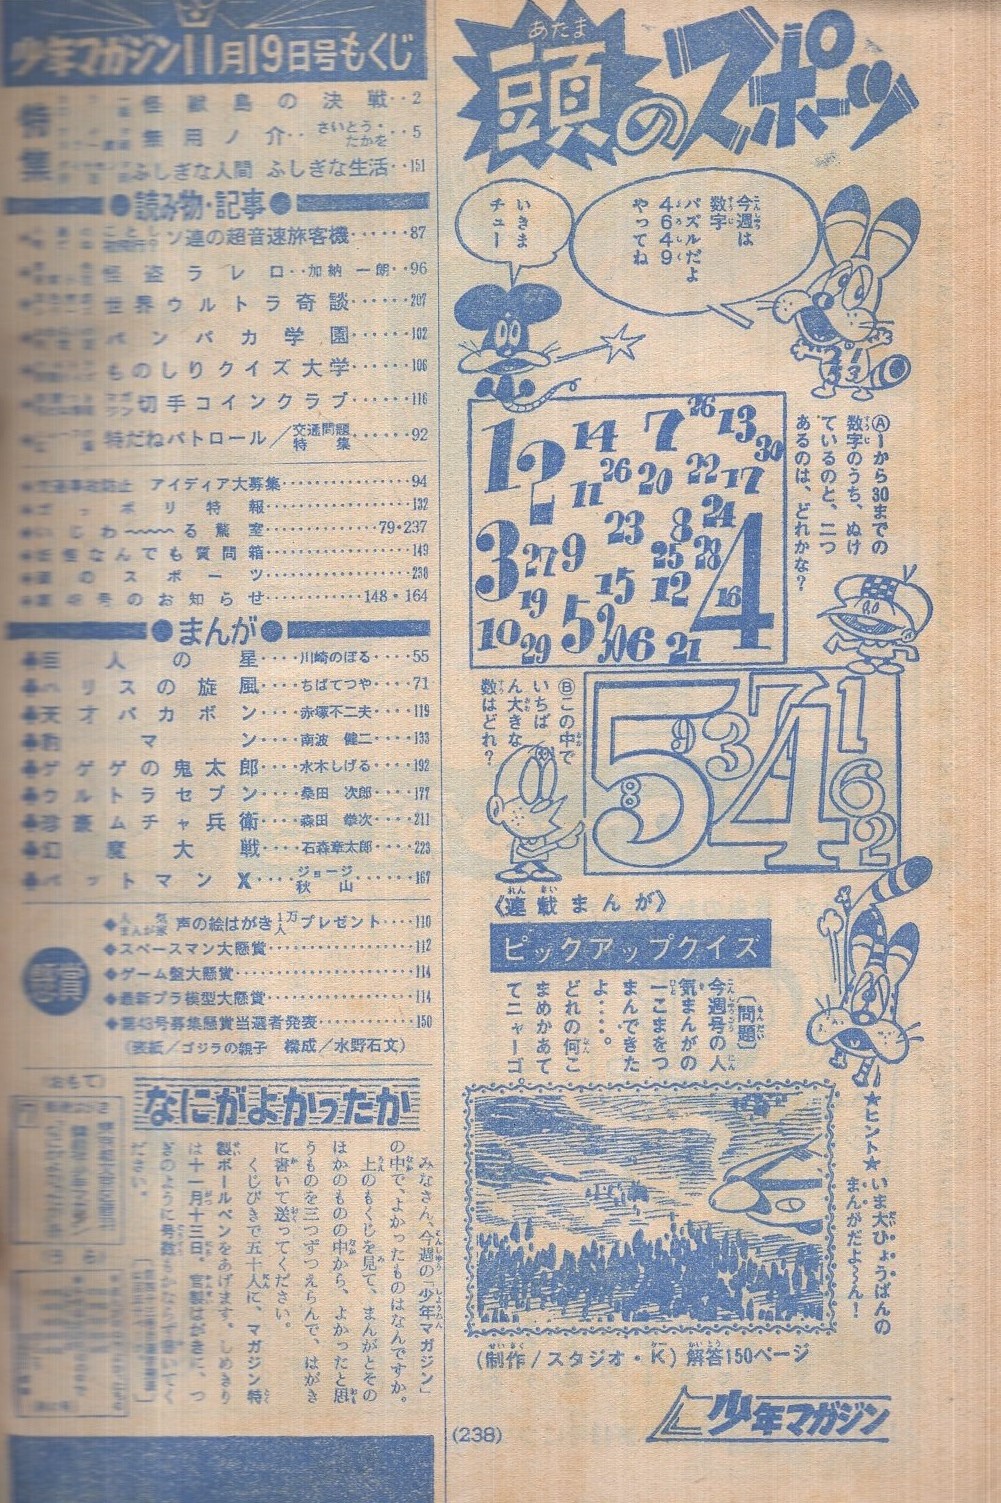 少年マガジン11月19日号もくじ
特集
怪獣島の決戦‥2
無用ノ介‥さいとう・たかを‥5
ふしぎな人間 ふしぎな生活‥151
●読み物・記事●
ソ連の超音速旅客機‥‥87
怪盗ラレロ‥加納 一朗‥96
世界ウルトラ奇談‥‥‥207
パンパカ学園‥‥‥102
ものしりクイズ大学‥‥‥106
切手コインクラブ‥‥‥116
特だねパトロール／交通問題特集‥‥‥92
アイディア大募集‥‥‥94
特報‥‥‥132
いじわ〜〜〜る教室‥‥‥79・237
妖怪なんでも質問箱‥‥‥149
頭のスポーツ‥‥‥238
第49号のお知らせ‥‥‥148・164
●まんが●
巨人の星‥‥川崎のぼる‥‥55
ハリスの旋風‥‥ちばてつや‥‥71
天才バカボン‥‥赤塚不二夫‥‥119
豹マン‥‥南波 健二‥‥133
ゲゲゲの鬼太郎‥‥水木しげる‥‥192
ウルトラセブン‥‥桑田 次郎‥‥177
珍豪ムチャ兵衛‥‥森田 拳次‥‥211
幻魔大戦‥‥石森章太郎‥‥223
バットマンX‥‥ジョージ秋山‥‥167
懸賞
◆人気まんが家声の絵はがき1万人プレゼント‥‥110
◆スペースマン大懸賞‥‥‥112
◆ゲーム盤大懸賞‥‥‥114
◆最新プラ模型大懸賞‥‥‥114
◆第43号募集懸賞当選者発表‥‥‥150
（表紙／ゴジラの親子 構成／水野石文）
なにがよかったか
みなさん、今週の「少年マガジン」
の中で、よかったものはなんですか。
上のもくじを見て、まんがとその
ほかのものの中から、よかったと思
うものを三つずつえらんで、はがき
に書いて送ってください。
くじびきで五十人に、マガジン特
製ボールペンをあげます。しめきり
は十一月十三日。官製はがきに、つ
ぎのように号数 かならず書いてく
ださい。
（おもて）
（うら）
頭のスポーツ
あたま
今週は
数字
パズルだよ
4649
やってね
いきま
チュー
Ⓐ1から30までの
数字のうち、ぬけ
ているのと、二つ
あるのは、どれかな？
1 2 14 7 26 13 30
26 20 22 17
11
3 27 9 23 8 24
25 28 4
19 15 12 16
10 29 5 9 30 6 21
Ⓑこの中で
いちば
ん大きな
数はどれ？
5 9 3 7 4 1
8 6 2
《連載まんが》
ピックアップクイズ
〔問題〕
今週号の人
気まんがの
一こまをつ
まんできた
よ‥‥。
どれの何こ
まめかあて
てニャーゴ。
★ヒント★ いま大ひょうばんの
まんがだよ〜ん！
（制作／スタジオ・K）解答150ページ
少年マガジン
(238)